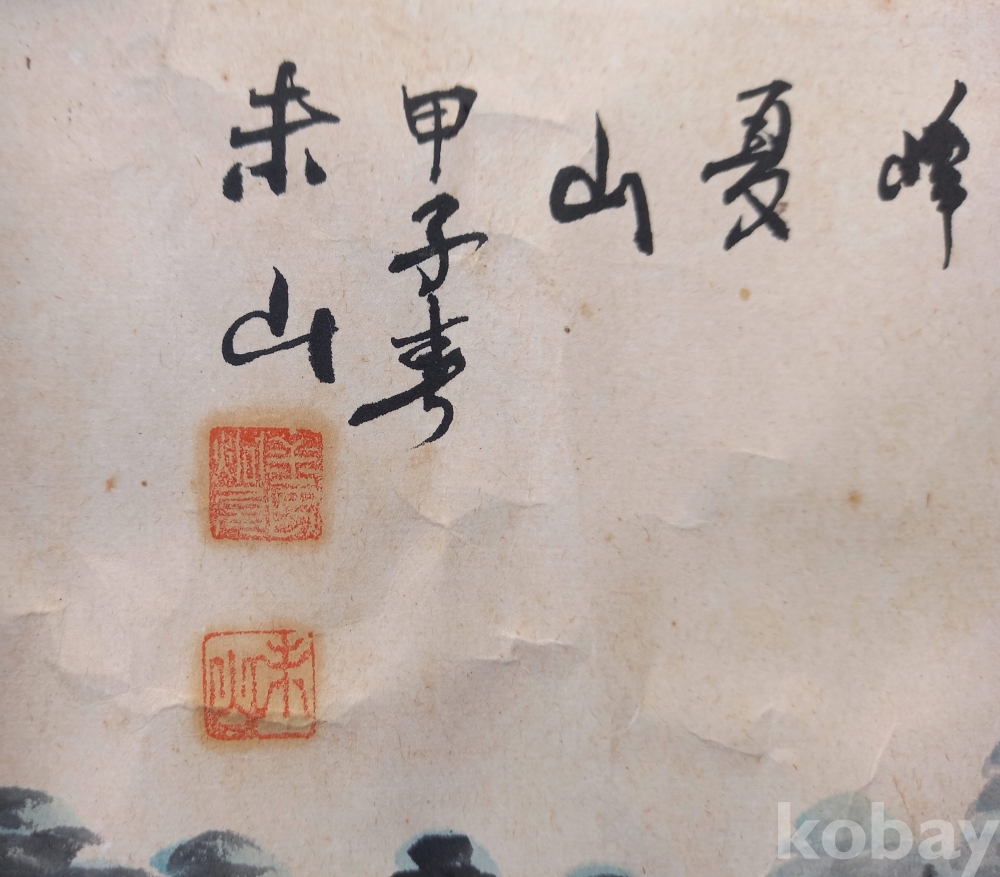 峰夏山
甲子春
未山
未山
kobay